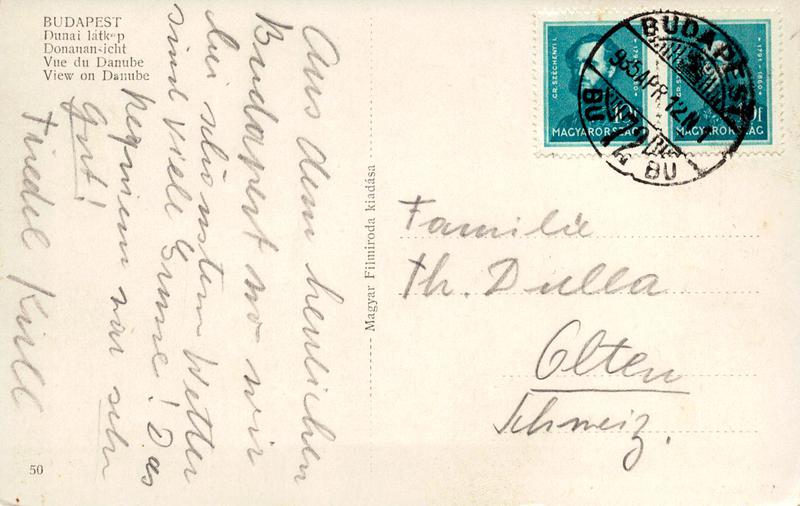 BUDAPEST
Dunai látkép
Donauansicht
Vue du Danube
View on Danube
Aus dem herrlichen
Budapest wo wir
bei schönstem Wetter
sind viele Grüsse! Das
Requiem war sehr
gut!
Friedel Kirll
50
Magyar Filmiroda kiadása
GR. SZÉCHENYI I.
1791-1860
MAGYARORSZÁG
GR. SZÉCHENYI I.
1791-1860
MAGYARORSZÁG
BUDAPEST
935 APR 12
BU
BU
Familie
Th. Dulla
Olten
Schweiz.